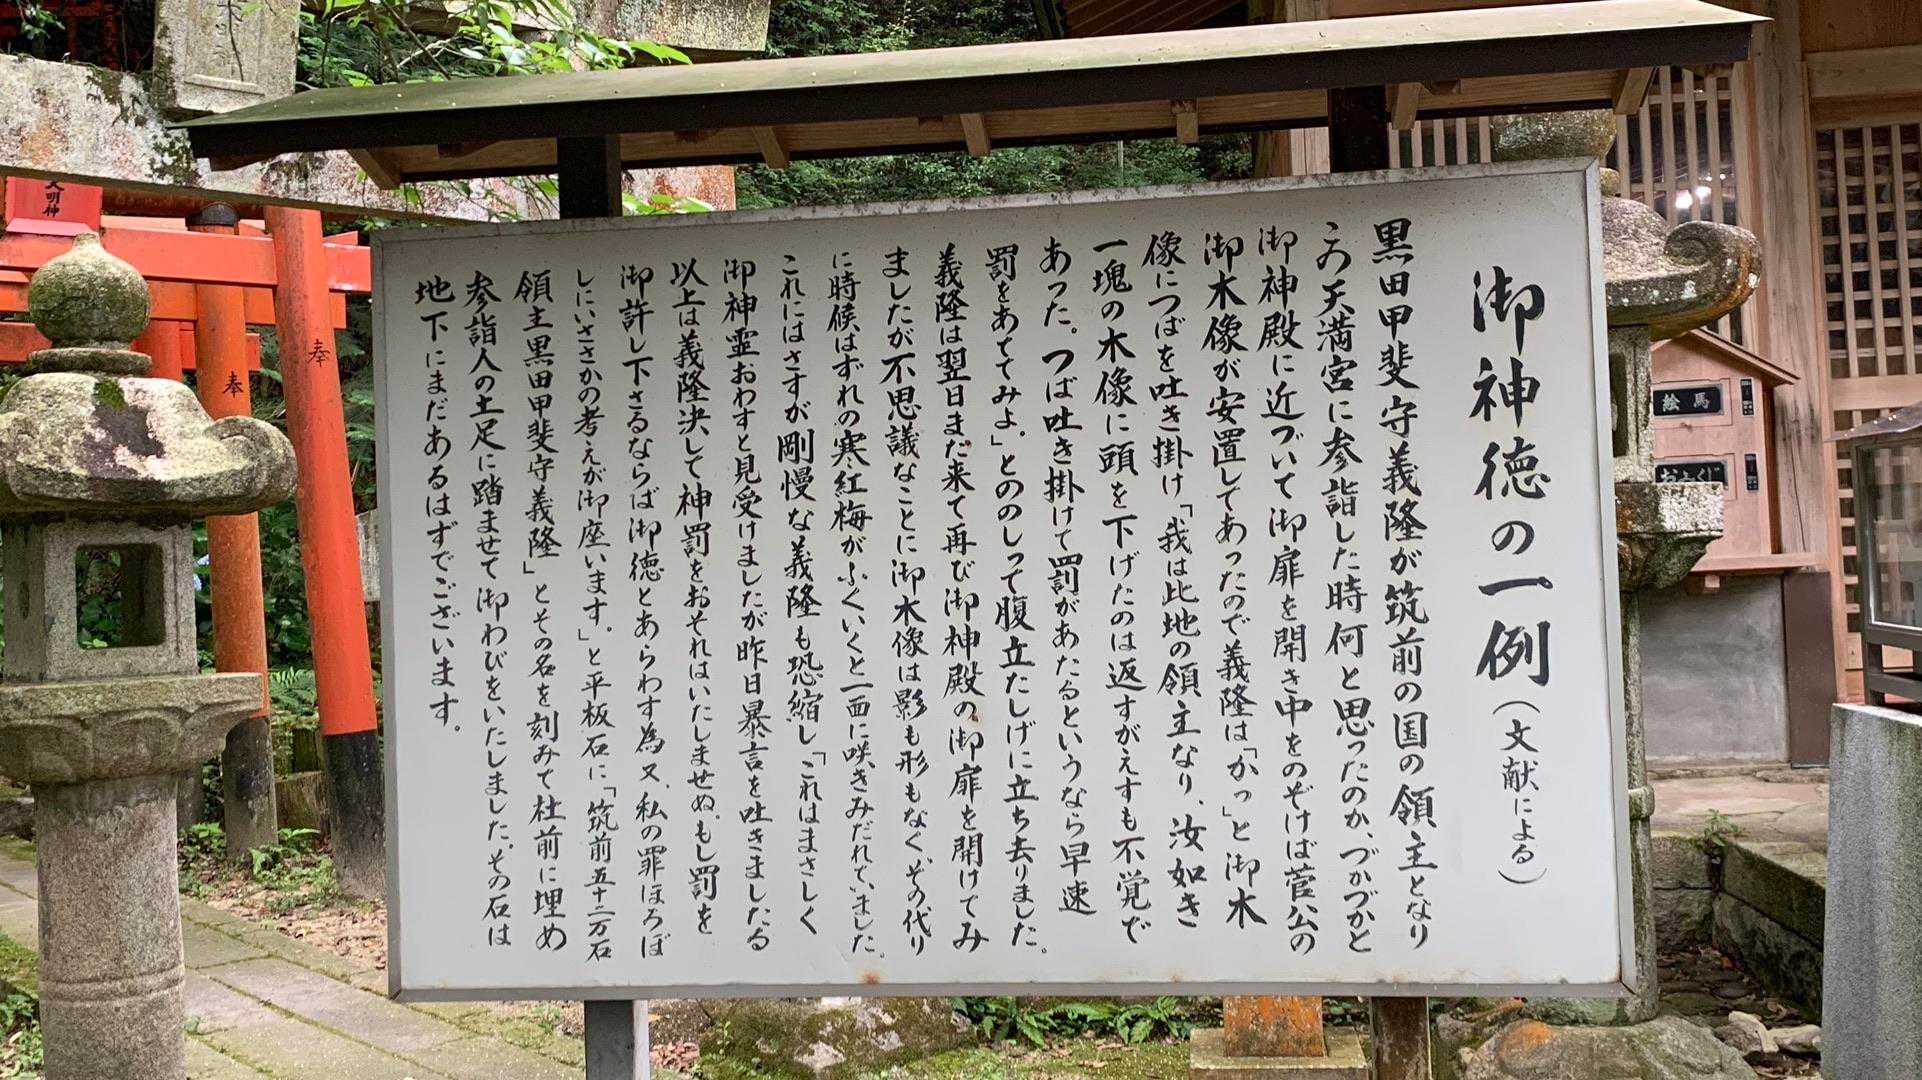 御神徳の一例(文献による)
黒田甲斐守義隆が筑前の国の領主となり
この天満宮に参詣した時何と思ったのか、づかづかと
御神殿に近づいて御扉を開き中をのぞけば菅公の
御木像が安置してあったので義隆は「かっ」と御木
像につばを吐き掛け「我は此地の領主なり、汝如き
一塊の木像に頭を下げたのは返すがえすも不覚で
あった。つば吐き掛けて罰があたるというなら早速
罰をあててみよ」とののしって腹立たしげに立ち去りました。
義隆は翌日また来て再び御神殿の御扉を開けてみ
ましたが不思議なことに御木像は影も形もなくその代り
に時候はずれの寒紅梅がふくいくと一面に咲きみだれていました。
これにはさすが剛慢な義隆も恐縮し「これはまさしく
御神霊おわすと見受けましたが昨日暴言を吐きましたる
以上は義隆決して神罰をおそれはいたしませぬ。もし罰を
御許し下さるならば御徳とあらわす為又、私の罪ほろぼ
しにいささかの考えが御座います。」と平板石に「筑前五十二万石
領主黒田甲斐守義隆」とその名を刻みて社前に埋め
参詣人の土足に踏ませて御わびをいたしました。その石は
地下にまだあるはずでございます。
大明神
奉
奉
絵馬
おみくじ